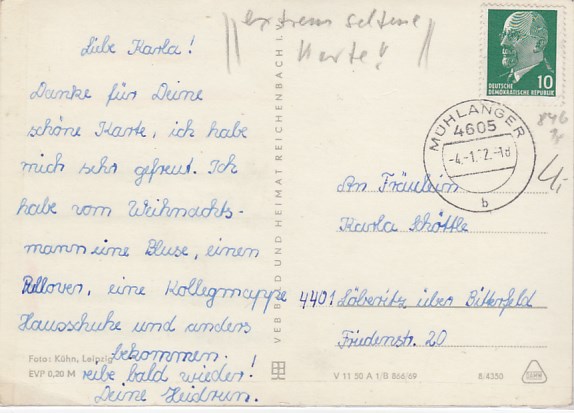 extrem seltene
Karte!!
Liebe Karla!
Danke für Deine
schöne Karte, ich habe
mich sehr gefreut. Ich
habe vom Weihnachts-
mann eine Bluse, einen
Pullover, eine Kollegmappe
Hausschuhe und anders
bekommen.
reibe bald wieder!
Deine Heidrun.
Foto: Kühn, Leipzig
EVP 0,20 M
VEB BILD UND HEIMAT REICHENBACH I. V.
10
DEUTSCHE
DEMOKRATISCHE REPUBLIK
MÜHLANGER
4605
-4.-1.72.-18
b
846
4,-
An Fräulein
Karla Schöttle
4401 Löberitz über Bitterfeld
Friedenstr. 20
V 11 50 A 1/B 866/69
8/4350